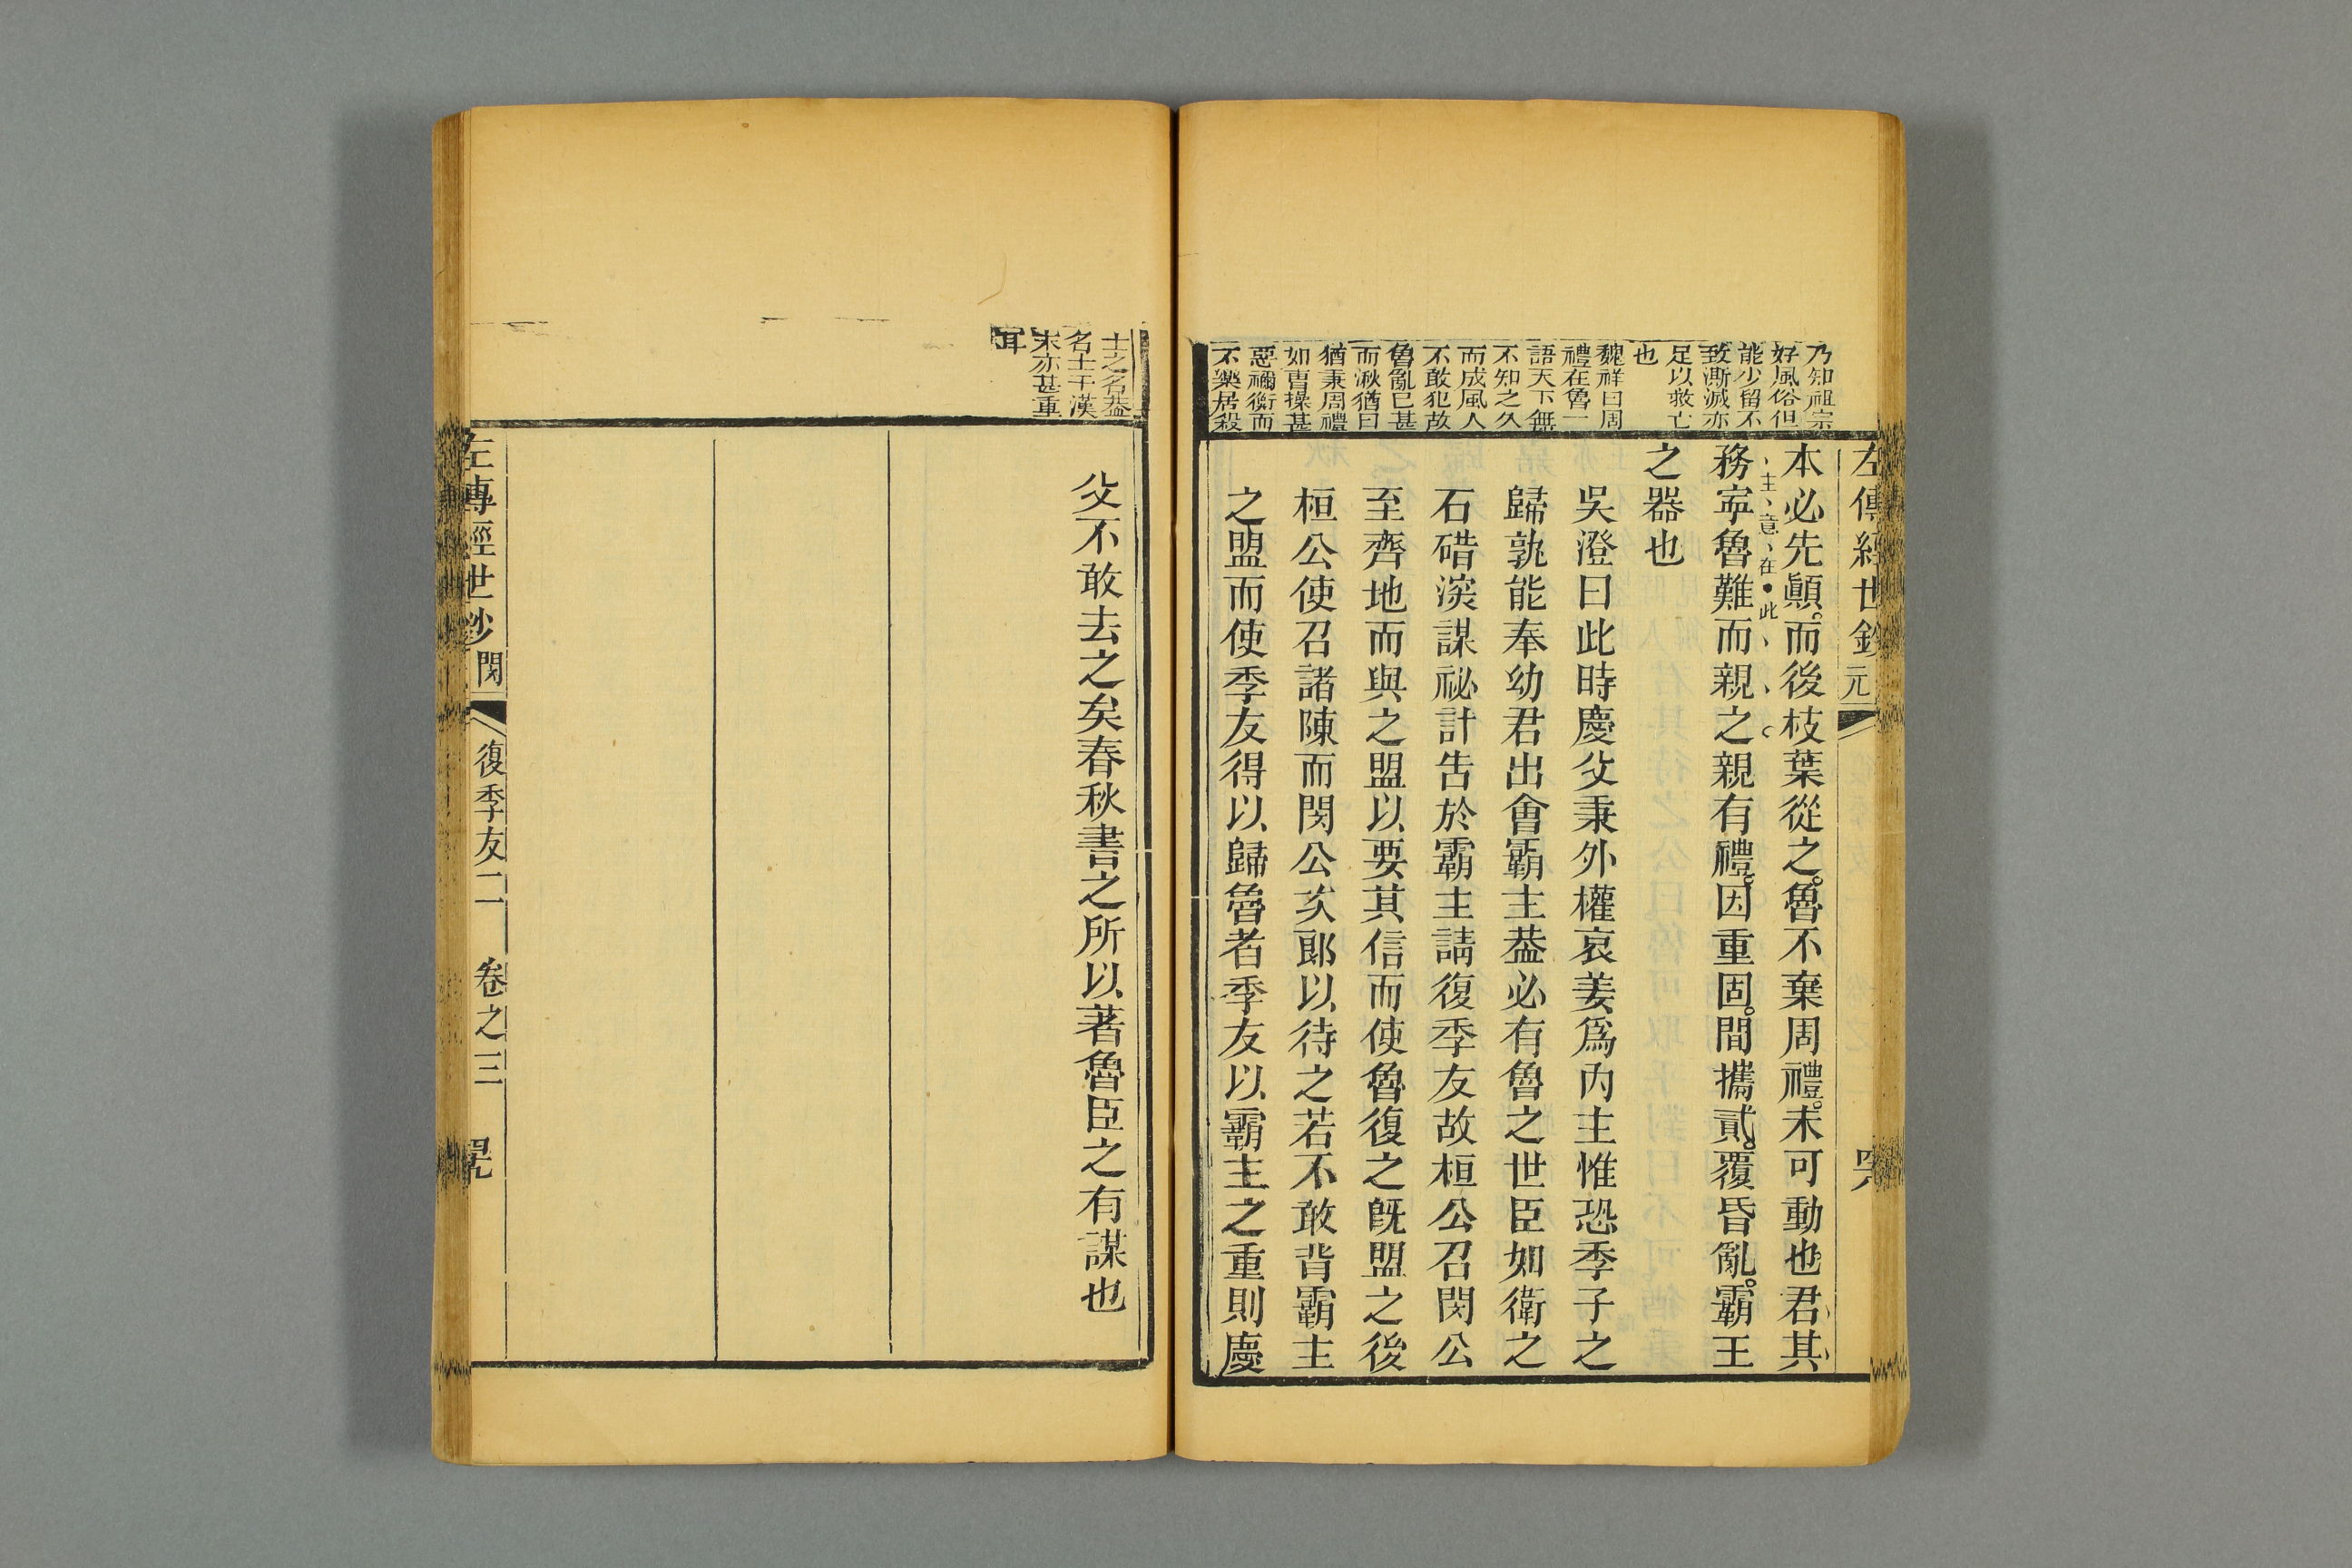 左傳經世鈔 元
乃知祖宗
好風俗但
能少留不
致澌滅亦
足以救亡
也
魏祥曰周
禮在魯一
語天下無
不知之久
而成風人
不敢犯故
魯亂已甚
而湫猶曰
猶秉周禮
如曹操甚
惡禰衡而
不樂居殺
本必先顛而後枝葉從之魯不棄周禮未可動也君其
主意在此
務寧魯難而親之親有禮因重固間攜貳覆昏亂霸王
之器也
吳澄曰此時慶父秉外權哀姜爲內主惟恐季子之
歸孰能奉幼君出會霸主葢必有魯之世臣如衛之
石碏深謀祕計告於霸主請復季友故桓公召閔公
至齊地而與之盟以要其信而使魯復之旣盟之後
桓公使召諸陳而閔公次郎以待之若不敢背霸主
之盟而使季友得以歸魯者季友以霸主之重則慶
士之名葢
名士于漢
末亦甚重
耳
父不敢去之矣春秋書之所以著魯臣之有謀也
左傳經世鈔 閔 復季友二 卷之三